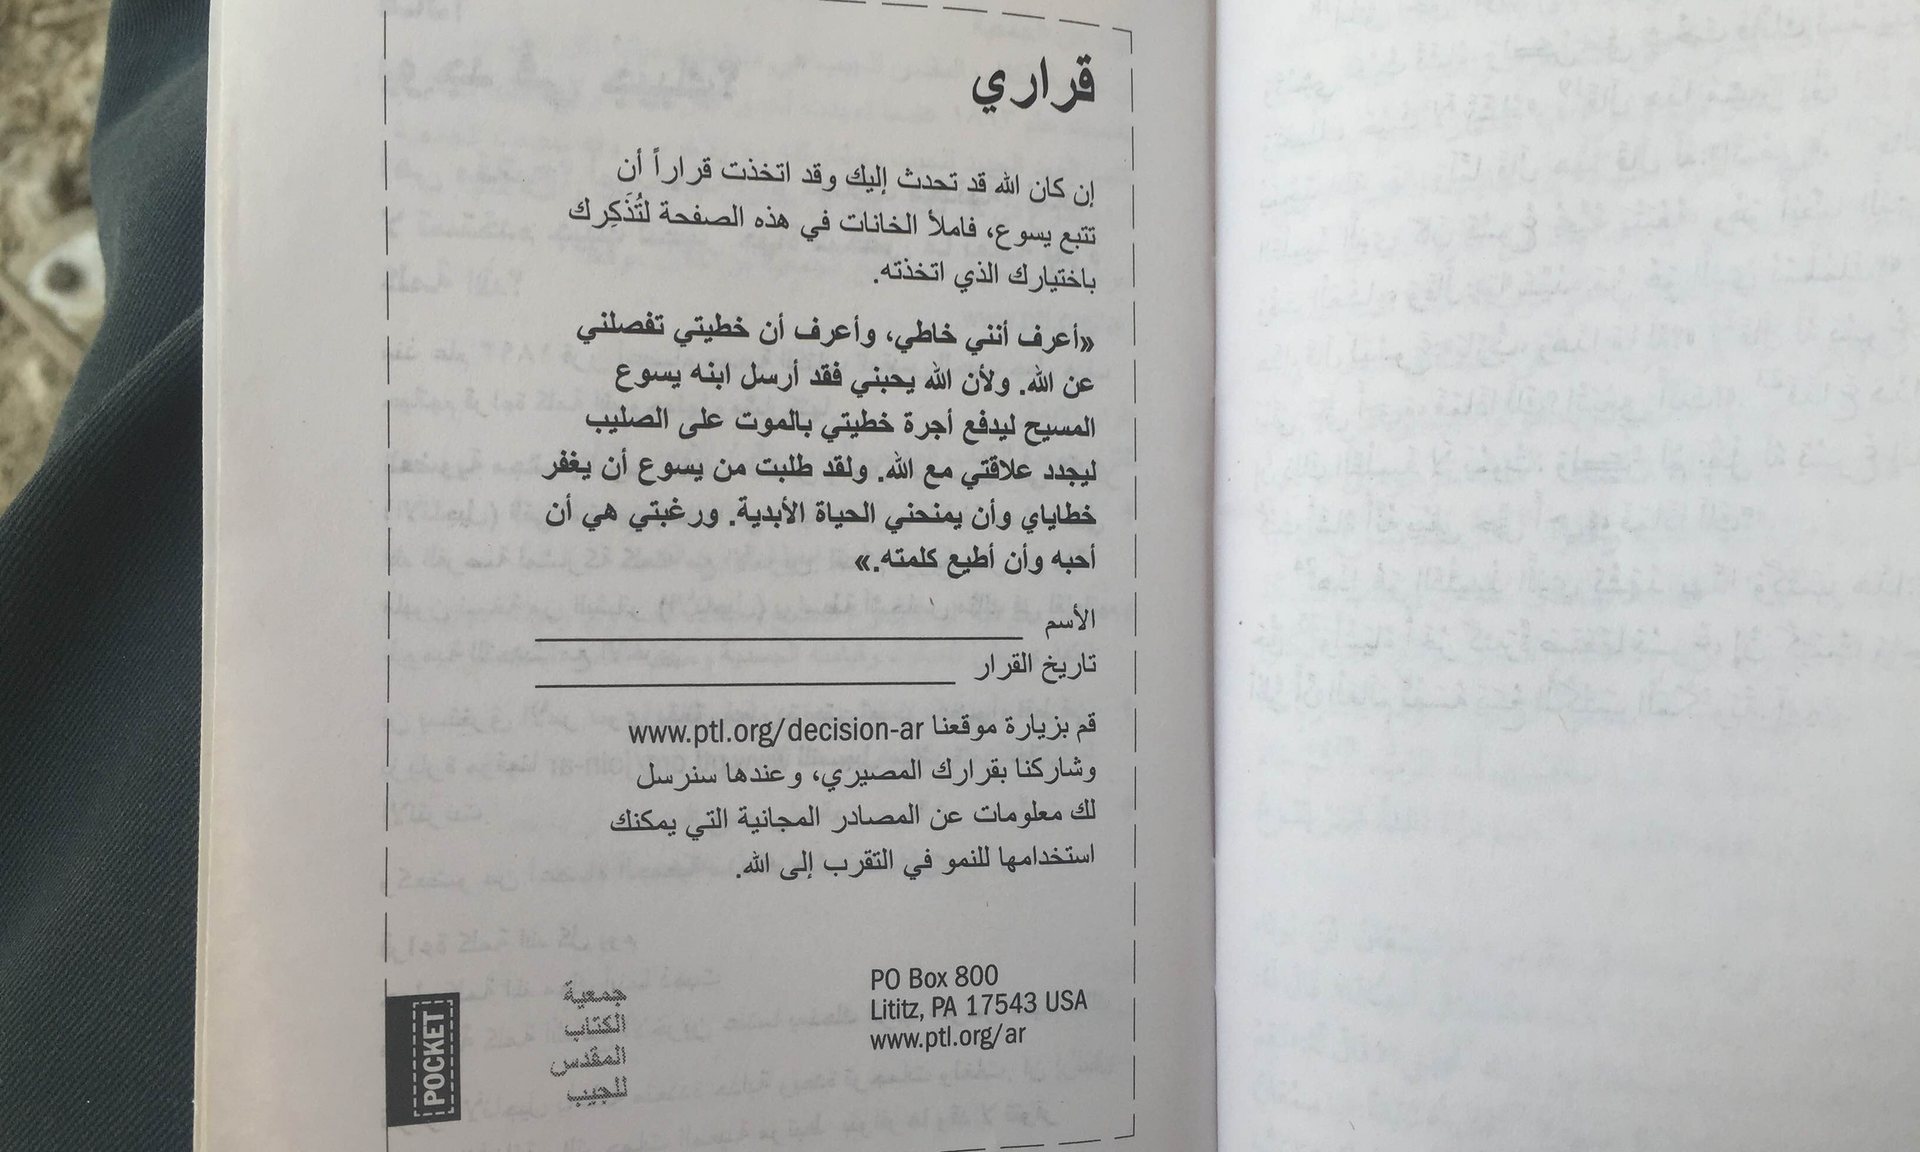 قراري
إن كان الله قد تحدث إليك وقد اتخذت قراراً أن
تتبع يسوع، فاملأ الخانات في هذه الصفحة لتُذَكِرك
باختيارك الذي اتخذته.
«أعرف أنني خاطي، وأعرف أن خطيتي تفصلني
عن الله. ولأن الله يحبني فقد أرسل ابنه يسوع
المسيح ليدفع أجرة خطيتي بالموت على الصليب
ليجدد علاقتي مع الله. ولقد طلبت من يسوع أن يغفر
خطاياي وأن يمنحني الحياة الأبدية. ورغبتي هي أن
أحبه وأن أطيع كلمته.»
الأسم
تاريخ القرار
قم بزيارة موقعنا www.ptl.org/decision-ar
وشاركنا بقرارك المصيري، وعندها سنرسل
لك معلومات عن المصادر المجانية التي يمكنك
استخدامها للنمو في التقرب إلى الله.
PO Box 800
Lititz, PA 17543 USA
www.ptl.org/ar
جمعية
الكتاب
المقدس
للجيب
POCKET